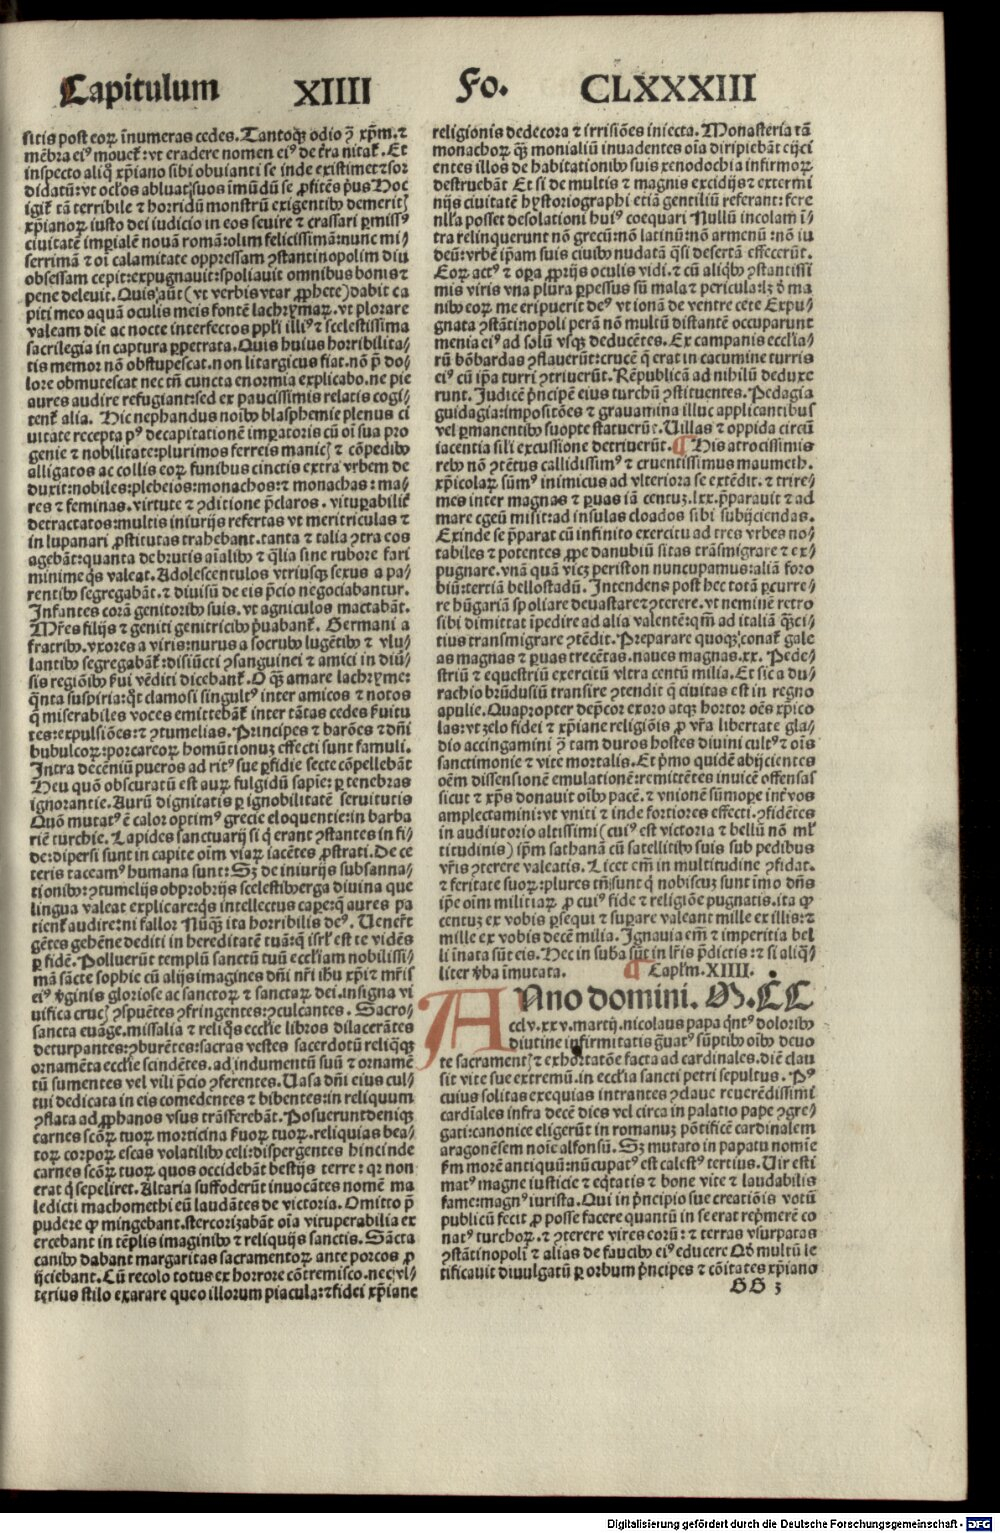 Capitulum XIIII Fo. CLXXXIII
sitis post eoꝝ īnumeras cedes. Tantoqꝫ odio ꝯ̄ xp̄m. ⁊
mēbra eiꝰ mouet᷑: vt eradere nomen eiꝰ de t̄ra nitat᷑. Et
inspecto aliq̊ xp̄iano sibi obuianti se inde existimet ⁊sor
didatū: vt oc̄los abluat; suos īmūdū se ꝓfitēs p̄us Hoc
igit᷑ tā terribile ⁊ horridū monstrū exigentibꝰ demeritꝭ
xp̄ianoꝝ iusto dei iudicio in eos seuire ⁊ crassari ꝑmissꝰ
ciuitatē imꝑialē nouā romā: olim felicissimā: nunc mi⸗
serrimā ⁊ oī calamitate oppressam ꝯstantinopolim diu
obsessam cepit: expugnauit: spoliauit omnibus bonis ⁊
pene deleuit. Quis aūt (vt verbis vtar ꝓphete) dabit ca
piti meo aquā oculis meis fontē lachrymaꝝ. vt plorare
valeam die ac nocte interfectos pp̄li illiꝰ ⁊ scelestissima
sacrilegia in captura ꝑpetrata. Quis huius horribilita⸗
tis memor nō obstupescat. non litargicus fiat. nō p̄ do⸗
lore obmutescat nec tn̄ cuncta enormia explicabo. ne pie
aures audire refugiant: sed ex paucissimis relatis cogi⸗
tent᷑ alia. Hic nephandus noībꝰ blasphemie plenus ci
uitate recepta pꝰ decapitationē imꝑatoris cū oī sua pro
genie ⁊ nobilitate: plurimos ferreis manicꝭ ⁊ cōpedibꝰ
alligatos ac collis eoꝝ funibus cinctis extra vrbem de
duxit: nobiles: plebeios: monachos: ⁊ monachas: ma⸗
res ⁊ feminas. virtute ⁊ ꝯditione p̄claros. vituꝑabilit᷑
detractatos: multis iniurijs refertas vt meritriculas ⁊
in lupanari ꝓstitutas trahebant. tanta ⁊ talia ꝯtra eos
agebāt: quanta de brutis aīalibꝰ ⁊ q̄lia sine rubore fari
minime q̄s valeat. Adolescentulos vtriusqꝫ sexus a pa⸗
rentibꝰ segregabāt. ⁊ diuisū de eis p̄cio negociabantur.
Infantes corā genitoribꝰ suis. vt agniculos mactabāt.
Mr̄es filijs ⁊ geniti genitricibꝰ p̄uabant᷑. Germani a
fratribꝰ. vxores a viris: nurus a socrubꝰ lugētibꝰ ⁊ vlu⸗
lantibꝰ segregabāt᷑: disiūcti ꝯsanguinei ⁊ amici in diū⸗
sis regiōibꝰ ẜui vēditi dicebant᷑. O q̄ꝫ amare lachryme:
q̄nta suspiria: q̄t clamosi singultꝰ inter amicos ⁊ notos
q̄ miserabiles voces emittebāt᷑ inter tātas cedes ẜuitu
tes: expulsiōes: ⁊ ꝯtumelias. Principes ⁊ barōes ⁊ dn̄i
bubulcoꝝ: porcareoꝝ homūtionuꝫ effecti sunt famuli.
Intra decēniū pueros ad ritꝰ sue ꝑfidie secte cōpellebāt
Heu quō obscuratū est auꝝ fulgidū sapīe: ꝑ tenebras
ignorantie. Aurū dignitatis ꝑ ignobilitatē seruitutis
Quō mutatꝰ ē calor optimꝰ grecie eloquentie: in barba
riē turchie. Lapides sanctuarij si q̄ erant ꝯstantes in fi⸗
de: dipersi sunt in capite oīm viaꝝ iacētes ꝓstrati. De ce
teris taceamꝰ humana sunt: Sꝫ de iniurijs subsanna⸗
tionibꝰ: ꝯtumelijs obprobrijs scelestibꝰ erga diuina que
lingua valeat explicare: q̄s intellectus caꝑe: q̄ aures pa
tient᷑ audire: ni fallor Nūqꝫ ita horribilis deꝰ. Uenert᷑
gētes gehēne dediti in hereditatē tuā: q̄ isrl̄ est te vidēs
ꝑ fidē. Polluerūt templū sanctū tuū eccl̄iam nobilissi⸗
mā sancte sophie cū alijs imagines dn̄i nr̄i ihū xp̄i ⁊ mr̄is
eiꝰ v̄ginis gloriose ac sanctoꝝ ⁊ sanctaꝝ dei. insigna vi
uifica crucꝭ ꝯspuētes ꝯfringentes: ꝯculcantes. Sacro⸗
sancta euāge. missalia ⁊ reliq̊s eccl̄ie libros dilacerātes
deturpantes: ꝯburētes: sacras vestes sacerdotū reliqꝫqꝫ
ornamēta eccl̄ie scindētes. ad indumentū suū ⁊ ornamē
tū sumentes vel vili p̄cio ꝯferentes. Uasa dn̄i eius cul⸗
tui dedicata in eis comedentes ⁊ bibentes: in reliquum
ꝯflata ad ꝓphanos vsus trāsferebāt. Posuerunt deniqꝫ
carnes scōꝝ tuoꝝ morticina ẜuoꝝ tuoꝝ. reliquias bea⸗
toꝝ corpoꝝ escas volatilibꝰ celi: dispergentes hincinde
carnes scōꝝ tuoꝝ quos occidebāt bestijs terre: qꝛ non
erat q̄ sepeliret. Altaria suffoderūt inuocātes nomē ma
ledicti machomethi eū laudātes de victoria. Omitto p̄
pudere ꝙ mingebant. stercorizabāt oīa vituperabilia ex
ercebant in tēplis imaginibꝰ ⁊ reliquijs sanctis. Sācta
canibꝰ dabant margaritas sacramentoꝝ ante porcos ꝓ
ijciebant. Cū recolo totus ex horrore cōtremisco. nec vl⸗
terius stilo exarare queo illorum piacula: ⁊ fidei xp̄iane
religionis dedecora ⁊ irrisiōes iniecta. Monasteria tā
monachoꝝ q̄ꝫ monialiū inuadentes oīa diripiebāt eijci
entes illos de habitationibꝰ suis xenodochia infirmoꝝ
destruebāt Et si de multis ⁊ magnis excidijs ⁊ extermi
nijs ciuitatē hystoriographi etiā gentiliū referant: fere
nll̄a posset desolationi huiꝰ coequari Nullū incolam ī⸗
tra relinquerunt nō grecū: nō latinū: nō armenū: nō iu
deū: vrbē ip̄am suis ciuibꝰ nudatā q̄si desertā effecerūt.
Eoꝝ actꝰ ⁊ oꝑa ꝓprijs oculis vidi. ⁊ cū aliq̊bꝰ ꝯstantissī
mis viris vna plura ꝑpessus sū mala ⁊ pericula: lꝫ d̄ ma
nibꝰ eoꝝ me eripuerit deꝰ vt ionā de ventre cete Expu⸗
gnata ꝯstātinopoli perā nō multū distantē occuparunt
menia eiꝰ ad solū vsqꝫ deducētes. Ex campanis eccl̄ia⸗
rū bōbardas ꝯflauerūt: crucē q̄ erat in cacumine turris
eiꝰ cū ip̄a turri ꝯtriuerūt. Rēpublicā ad nihilū deduxe
runt. Judicē p̄ncipē eius turchū ꝯstituentes. Pedagia
guidagia: impositōes ⁊ grauamina illuc applicantibus
vel ꝑmanentibꝰ suopte statuerūt. Uillas ⁊ oppida circū
iacentia sil̄i excussione detriuerūt. ¶ His atrocissimis
rebꝰ nō ꝯtētus callidissimꝰ ⁊ cruentissimus maumeth.
xp̄icolaꝝ sūmꝰ inimicus ad vlteriora se extēdit. ⁊ trire⸗
mes inter magnas ⁊ ꝑuas iā centuꝫ. lxx. p̄parauit ⁊ ad
mare egeū misit: ad insulas cloados sibi subijciendas.
Exinde se p̄parat cū infinito exercitu ad tres vrbes no⸗
tabiles ⁊ potentes ꝓpe danubiū sitas trāsmigrare ⁊ ex⸗
pugnare. vnā quā vicꝫ periston nuncupamus: aliā foro
biū: tertiā bellostadū. Intendens post hec totā ꝑcurre⸗
re hūgariā spoliare deuastare ⁊ ꝯterere. vt neminē retro
sibi dimittat īpedire ad alia valentē: qm̄ ad italiā q̄ꝫci⸗
tius transmigrare ꝯtēdit. Preparare quoqꝫ; conat᷑ gale
as magnas ⁊ ꝑuas trecētas. naues magnas. xx. Pede⸗
striū ⁊ equestriū exercitū vltra centū milia. Et sic a du⸗
rachio brūdusiū transire ꝯtendit q̄ ciuitas est in regno
apulie. Quapropter dep̄cor exoro atqꝫ hortor oēs xp̄ico
las: vt zelo fidei ⁊ xp̄iane religiōis ꝓ vr̄a libertate gla⸗
dio accingamini ꝯ̄ tam duros hostes diuini cultꝰ ⁊ oīs
sanctimonie ⁊ vite mortalis. Et p̄mo quidē abijcientes
oēm dissensionē emulationē: remittētes inuicē offensas
sicut ⁊ xp̄s donauit oībꝰ pacē. ⁊ vnionē sūmoꝑe int̄ vos
amplectamini: vt vniti ⁊ inde fortiores effecti. ꝯfidētes
in audiutorio altissimi (cuiꝰ est victoria ⁊ bellū nō ml̄
titudinis) ip̄m sathanā cū satellitibꝰ suis sub pedibus
vr̄is ꝯterere valeatis. Licet em̄ in multitudine ꝯfidat.
⁊ feritate suoꝝ: plures tn̄; sunt q̄ nobiscuꝫ sunt imo dn̄s
ip̄e oīm militiaꝝ ꝓ cuiꝰ fide ⁊ religiōe pugnatis. ita ꝙ
centuꝫ ex vobis ꝑsequi ⁊ suꝑare valeant mille ex illis: ⁊
mille ex vobis decē milia. Ignauia em̄ ⁊ imperitia bel
li īnata sūt eis. Hec in suba sūt in lr̄is p̄dictis: ⁊ si aliq̄⸗
liter v̄ba īmutata. ¶ Capl̄m. XIIII.
ANno domini. M. CC
ccl v. xx v. martij. nicolaus papa q̄ntꝰ doloribꝰ
diutine infirmitatis ḡuatꝰ sūptibꝰ oībꝰ deuo
te sacramentꝭ ⁊ exhortatōe facta ad cardinales. diē clau
sit vite sue extremū. in eccl̄ia sancti petri sepultus. Pꝰ
cuius solitas exequias intrantes ꝯclaue reuerēdissimi
cardīales infra decē dies vel circa in palatio pape ꝯgre⸗
gati: canonice eligerūt in romanuꝫ pōtificē cardinalem
aragonēsem noīe alfonsū. Sꝫ mutato in papatu nomīe
ẜm morē antiquū: nūcupatꝰ est calestꝰ tertius. Uir esti
matꝰ magne iusticie ⁊ eq̄tatis ⁊ bone vite ⁊ laudabilis
fame: magnꝰ iurista. Qui in p̄ncipio sue creatiōis votū
publicū fecit ꝓ posse facere quantū in se erat rep̄mere co
natꝰ turchoꝝ. ⁊ ꝯterere vires eorū: ⁊ terras vsurpatas
ꝯstātinopoli ⁊ alias de faucibꝰ eiꝰ educere Qd̄ multū le
tificauit diuulgatū ꝑ orbum p̄ncipes ⁊ cōitates xp̄iano
GG 3
Digitalisierung gefördert durch die Deutsche Forschungsgemeinschaft - DFG